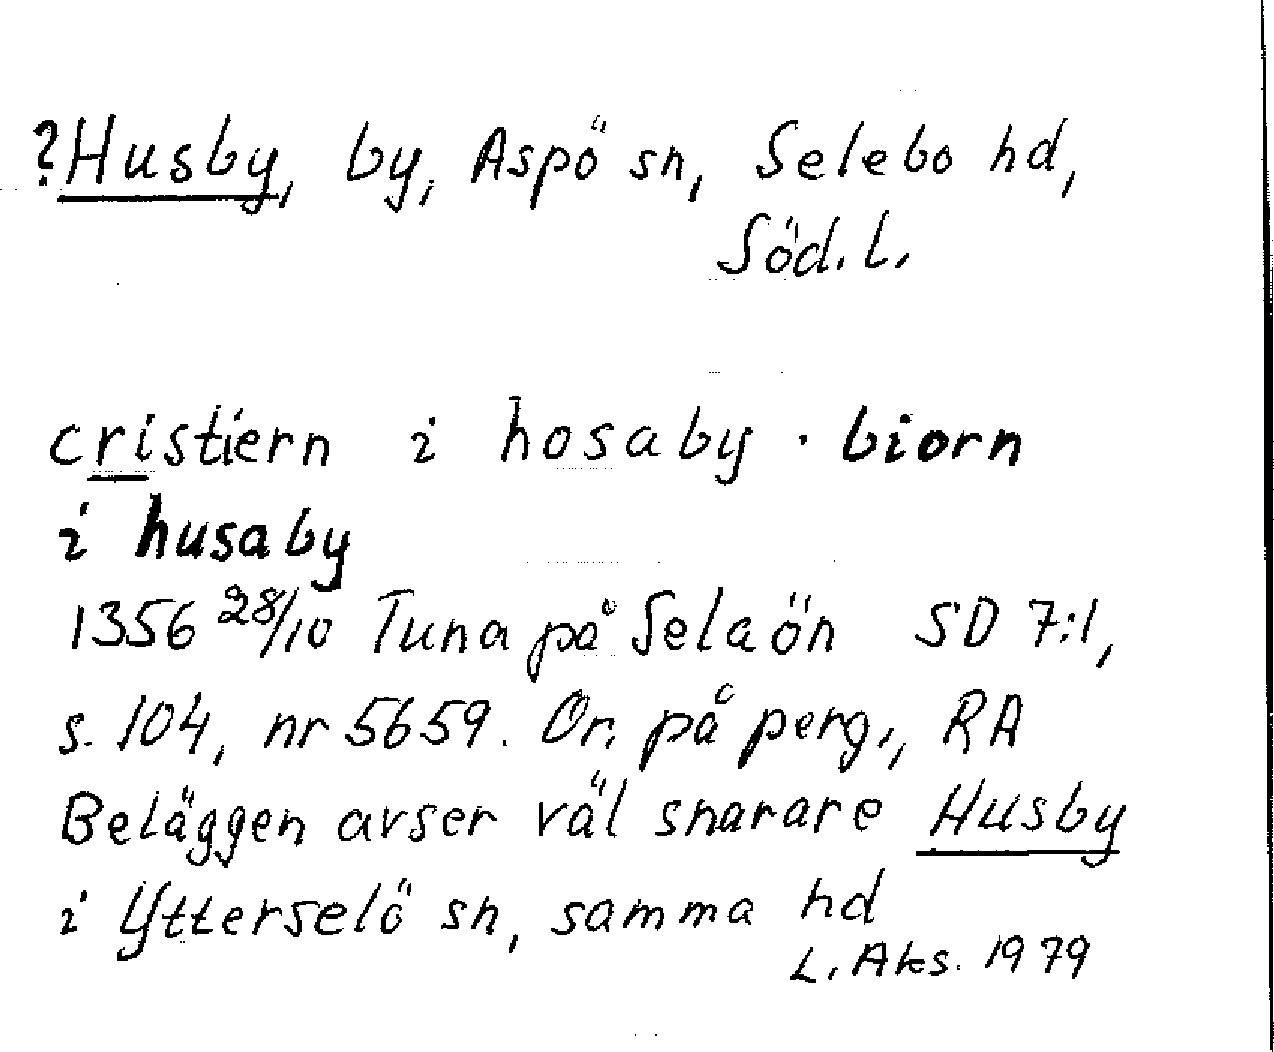 ?Husby, by, Aspö sn, Selebo hd,
Söd. l.
cristiern i hosaby · biorn
i husaby
1356 28/10 Tuna på Selaön SD 7:1,
s. 104, nr 5659. Or. på perg., RA
Beläggen avser väl snarare Husby
i Ytterselö sn, samma hd
L. Aks. 1979